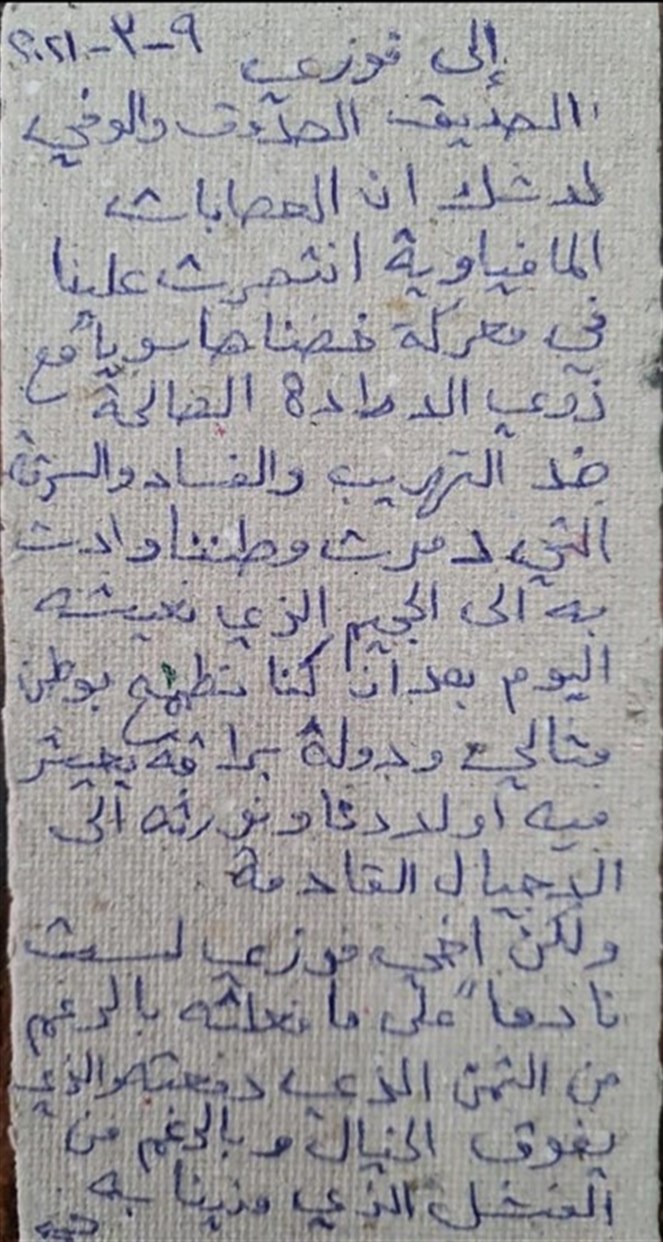 إلى فوزي ٩-٣-٢٠٢١
الصديق الصدوق والوفي
لا شك ان العصابات
المافياوية انتصرت علينا
في معركة خضناها سوياً مع
ذوي الارادة الصالحة
ضد التهريب والفساد والسرقة
التي دمرت وطننا وادت
به الى الجحيم الذي نعيشه
اليوم بعد ان كنا نطمح بوطن
مثالي ودولة براقة يعيش
فيه أولادنا ونورثه الى
الاجيال القادمة
ولكن أخي فوزي لست
نادماً على ما فعلته بالرغم
من الثمن الذي دفعته والذي
يفوق الخيال وبالرغم من
الفشل الذي منينا به